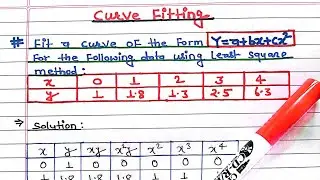 Curve Fitting
# Fit a curve of the form Y=a+bx+cx²
For the following data using least square
method:
x 0 1 2 3 4
y 1 1.8 1.3 2.5 6.3
⇒ Solution:
x y xy x²y x² x³ x⁴
0 1 0 0 0 0 0
1 1.8 1.8 1.8 1 1